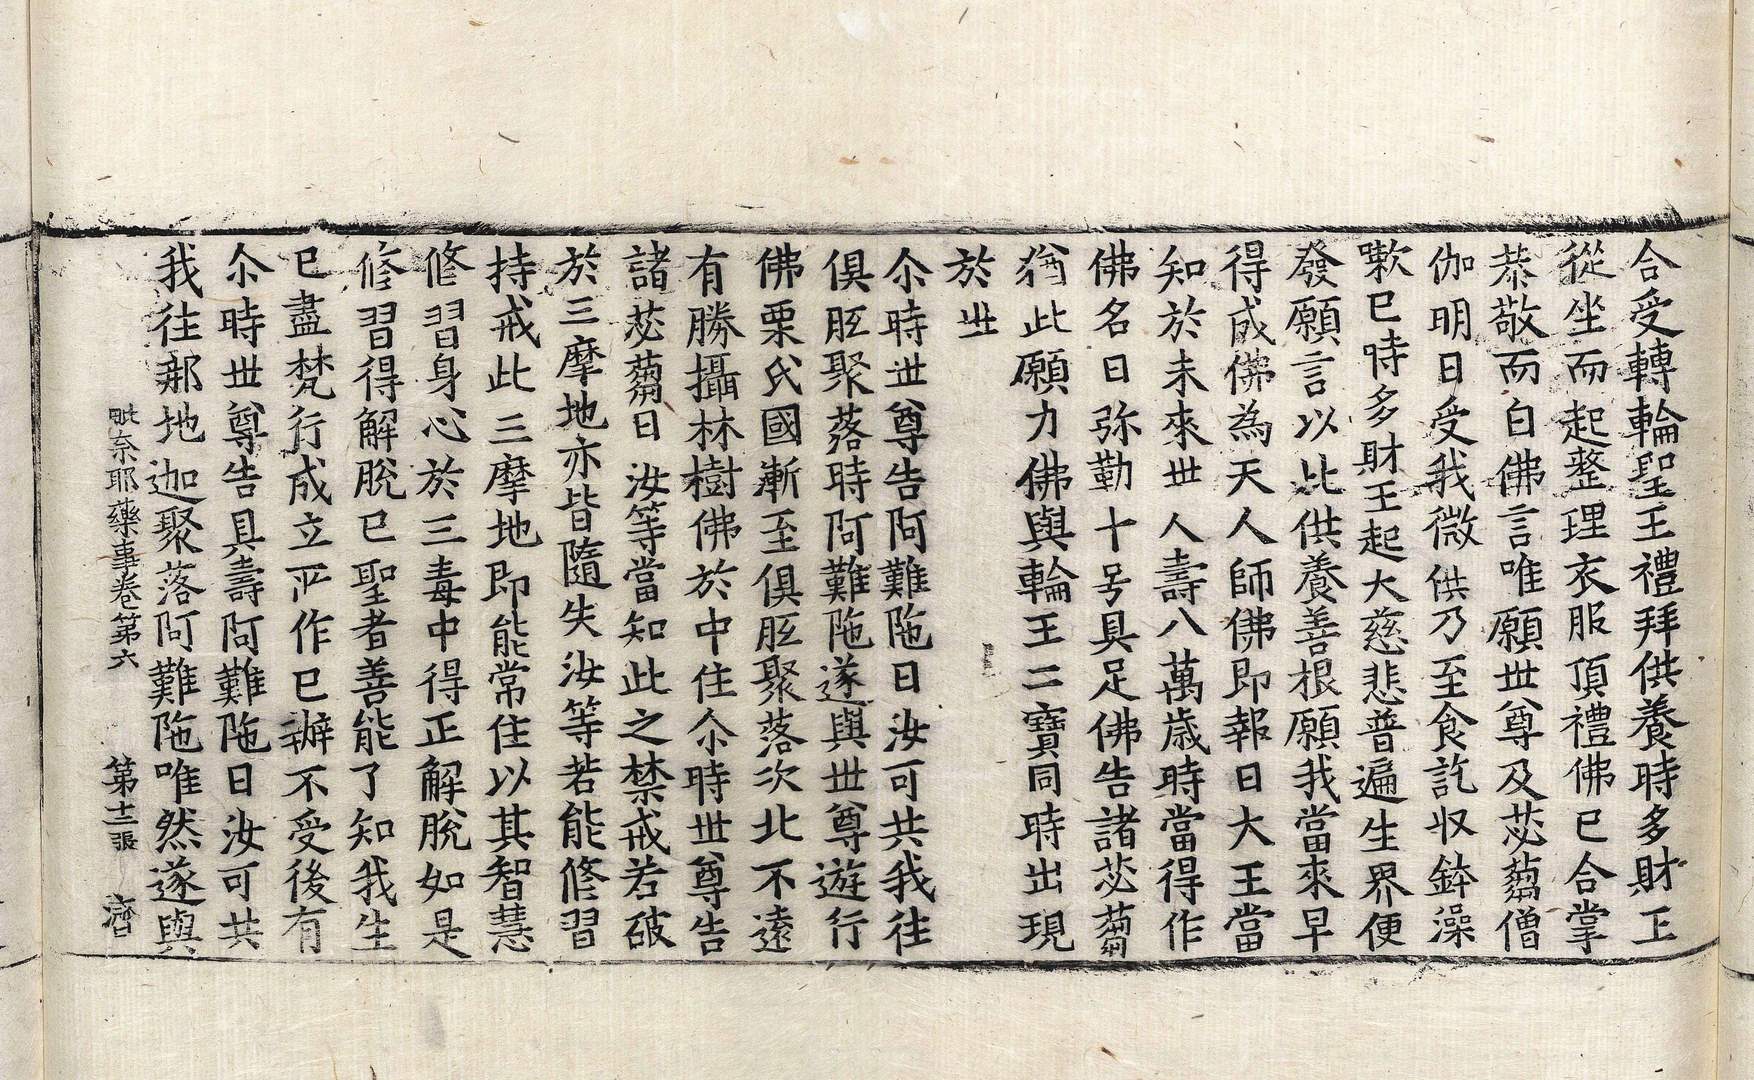 合受轉輪聖王禮拜供養時多財王
從坐而起整理衣服頂禮佛已合掌
恭敬而白佛言唯願世尊及苾蒭僧
伽明日受我微供乃至食訖収鉢澡
嗽已時多財王起大慈悲普遍生界便
發願言以此供養善根願我當來早
得成佛為天人師佛即報曰大王當
知於未來世人壽八萬歳時當得作
佛名曰弥勒十号具足佛告諸苾蒭
猶此願力佛與輪王二寶同時出現
於世
尒時世尊告阿難陁曰汝可共我往
俱胝聚落時阿難陁遂與世尊遊行
佛栗氏國漸至俱胝聚落次北不遠
有勝攝林樹佛於中住尒時世尊告
諸苾蒭曰汝等當知此之禁戒若破
於三摩地亦皆隨失汝等若能修習
持戒此三摩地即能常住以其智慧
修習身心於三毒中得正解脫如是
修習得解脫已聖者善能了知我生
已盡梵行成立所作已辦不受後有
尒時世尊告具壽阿難陁曰汝可共
我往那地迦聚落阿難陁唯然遂與
毗奈耶藥事卷第六 第十二張 濟